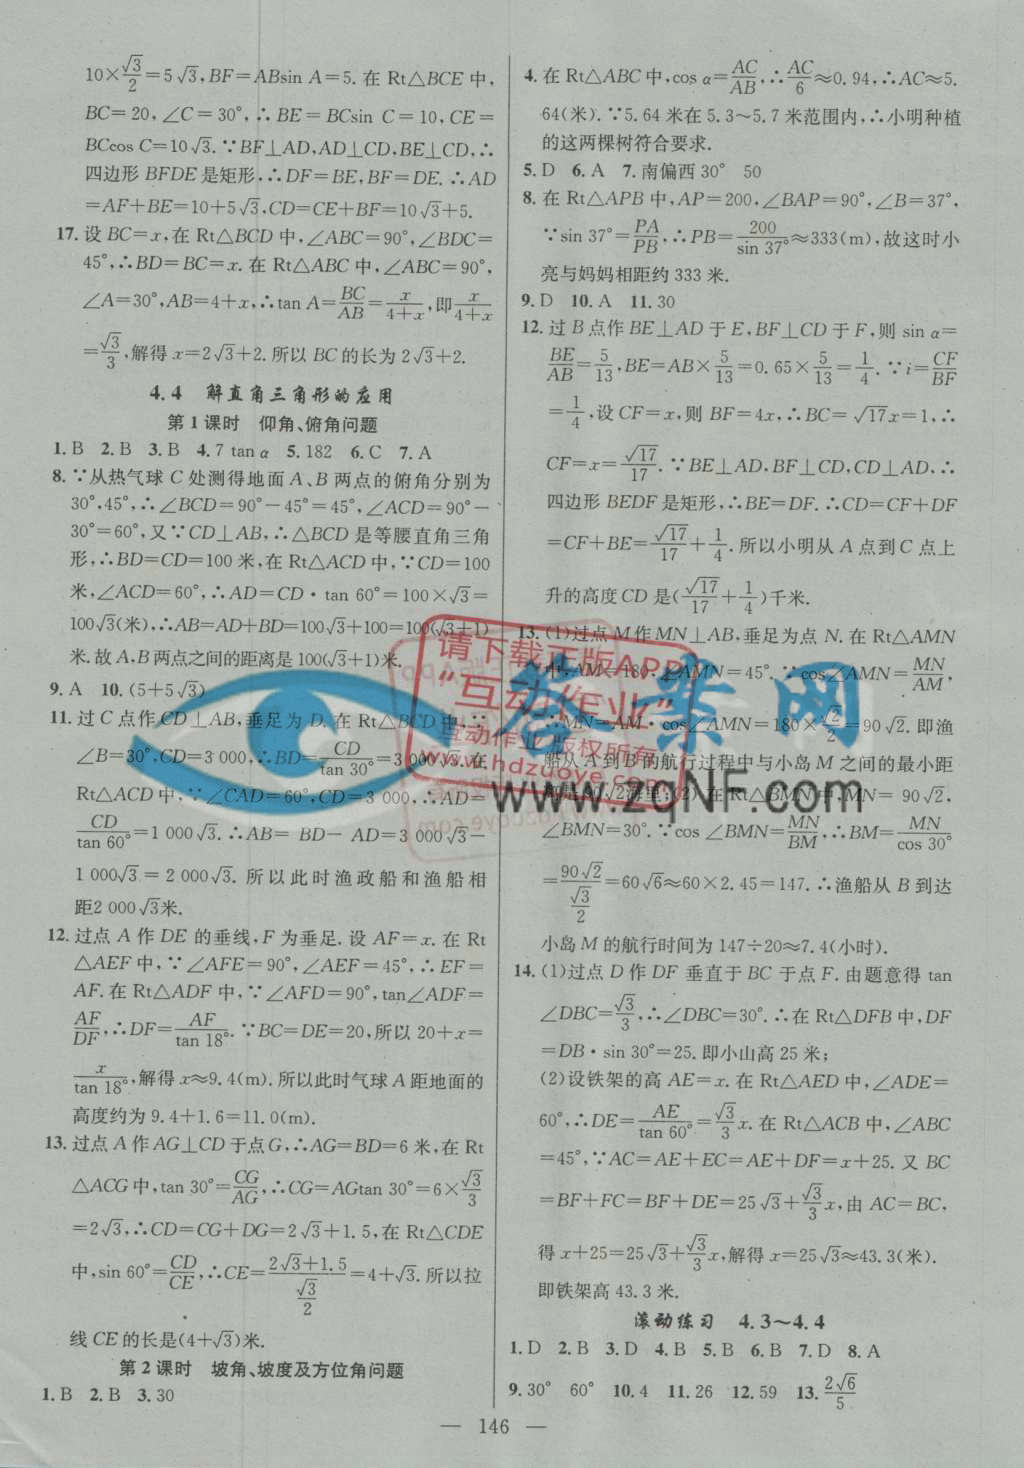 10×√3/2=5√3,BF=ABsin A=5. 在 Rt△BCE 中,
BC=20,∠C=30°,∴BE=BCsin C=10,CE=
BCcos C=10√3.∵BF⊥AD,AD⊥CD,BE⊥CD,∴
四边形 BFDE 是矩形,∴DF=BE,BF=DE.∴AD
=AF+BE=10+5√3,CD=CE+BF=10√3+5.
17. 设 BC=x,在 Rt△BCD 中,∠ABC=90°,∠BDC=
45°,∴BD=BC=x. 在 Rt△ABC 中,∠ABC=90°,
∠A=30°,AB=4+x,∴tan A=BC/AB=x/(4+x),即x/(4+x)
=√3/3,解得 x=2√3+2. 所以 BC 的长为 2√3+2.
4.4 解直角三角形的应用
第 1 课时 仰角、俯角问题
1. B 2. B 3. B 4. 7 tan α 5. 182 6. C 7. A
8. ∵从热气球 C 处测得地面 A、B 两点的俯角分别为
30°,45°,∴∠BCD=90°-45°=45°,∠ACD=90°-
30°=60°,又∵CD⊥AB,∴△BCD 是等腰直角三角
形,∴BD=CD=100 米,在 Rt△ACD 中,∵CD=100
米,∠ACD=60°,∴AD=CD·tan 60°=100×√3=
100√3(米),∴AB=AD+BD=100√3+100=100(√3+1)
米.故 A,B 两点之间的距离是 100(√3+1)米.
9. A 10. (5+5√3)
11. 过 C 点作 CD⊥AB,垂足为 D. 在 Rt△BCD 中,∵
∠B=30°,CD=3 000,∴BD=CD/tan 30°=3 000√3. 在
Rt△ACD 中,∵∠CAD=60°,CD=3 000,∴AD=
CD/tan 60°=1 000√3.∴AB=BD-AD=3 000√3-
1 000√3=2 000√3. 所以此时渔政船和渔船相
距2 000√3米.
12. 过点 A 作 DE 的垂线,F 为垂足. 设 AF=x. 在 Rt
△AEF 中,∵∠AFE=90°,∠AEF=45°,∴EF=
AF. 在 Rt△ADF 中,∵∠AFD=90°,tan∠ADF=
AF/DF,∴DF=AF/tan 18°.∵BC=DE=20,所以 20+x=
x/tan 18°,解得 x≈9.4(m). 所以此时气球 A 距地面的
高度约为 9.4+1.6=11.0(m).
13. 过点 A 作 AG⊥CD 于点 G,∴AG=BD=6 米,在 Rt
△ACG 中,tan 30°=CG/AG,∴CG=AGtan 30°=6×√3/3
=2√3,∴CD=CG+DG=2√3+1.5,在 Rt△CDE
中,sin 60°=CD/CE,∴CE=(2√3+1.5)/(√3/2)=4+√3. 所以拉
线 CE 的长是(4+√3)米.
第 2 课时 坡角、坡度及方位角问题
1. B 2. B 3. 30
4. 在 Rt△ABC 中,cos α=AC/AB,∴AC/6≈0.94,∴AC≈5.
64(米).∵5.64 米在 5.3~5.7 米范围内,∴小明种植
的这两棵树符合要求.
5. D 6. A 7. 南偏西 30° 50
8. 在 Rt△APB 中,AP=200,∠BAP=90°,∠B=37°,
∵sin 37°=PA/PB,∴PB=200/sin 37°≈333(m),故这时小
亮与妈妈相距约 333 米.
9. D 10. A 11. 30
12. 过 B 点作 BE⊥AD 于 E,BF⊥CD 于 F,则 sin α=
BE/AB=5/13,BE=AB×5/13=0.65×5/13=1/4.∵i=CF/BF
=1/4,设 CF=x,则 BF=4x,∴BC=√17x=1,∴
CF=x=√17/17.∵BE⊥AD,BF⊥CD,AD⊥CD,∴
四边形 BEDF 是矩形,∴BE=DF.∴CD=CF+DF
=CF+BE=√17/17+1/4. 所以小明从 A 点到 C 点上
升的高度 CD 是(√17/17+1/4)千米.
13. (1)过点 M 作 MN⊥AB,垂足为点 N. 在 Rt△AMN
中,AM=180,∠AMN=45°.∵cos∠AMN=MN/AM,
∴MN=AM·cos∠AMN=180×√2/2=90√2. 即渔
船从 A 到 B 的航行过程中与小岛 M 之间的最小距
离是90√2海里;(2)在 Rt△BMN 中,MN=90√2,
∠BMN=30°.∵cos∠BMN=MN/BM,∴BM=MN/cos 30°
=90√2/(√3/2)=60√6≈60×2.45=147.∴渔船从 B 到达
小岛 M 的航行时间为 147÷20≈7.4(小时).
14. (1)过点 D 作 DF 垂直于 BC 于点 F. 由题意得 tan
∠DBC=√3/3,∴∠DBC=30°.∴在 Rt△DFB 中,DF
=DB·sin 30°=25. 即小山高 25 米;
(2)设铁架的高 AE=x. 在 Rt△AED 中,∠ADE=
60°,∴DE=AE/tan 60°=√3/3x. 在 Rt△ACB 中,∠ABC
=45°,∵AC=AE+EC=AE+DF=x+25. 又 BC
=BF+FC=BF+DE=25√3+√3/3x,由 AC=BC,
得 x+25=25√3+√3/3x,解得 x=25√3≈43.3(米).
即铁架高 43.3 米.
滚动练习 4.3~4.4
1. D 2. B 3. D 4. A 5. B 6. B 7. D 8. A
9. 30° 60° 10. 4 11. 26 12. 59 13. 2√6/5
— 146 —
请下载正版APP
“互动作业”
互动作业 版权所有
www.hdzuoye.com
答案网
www.zqNF.com